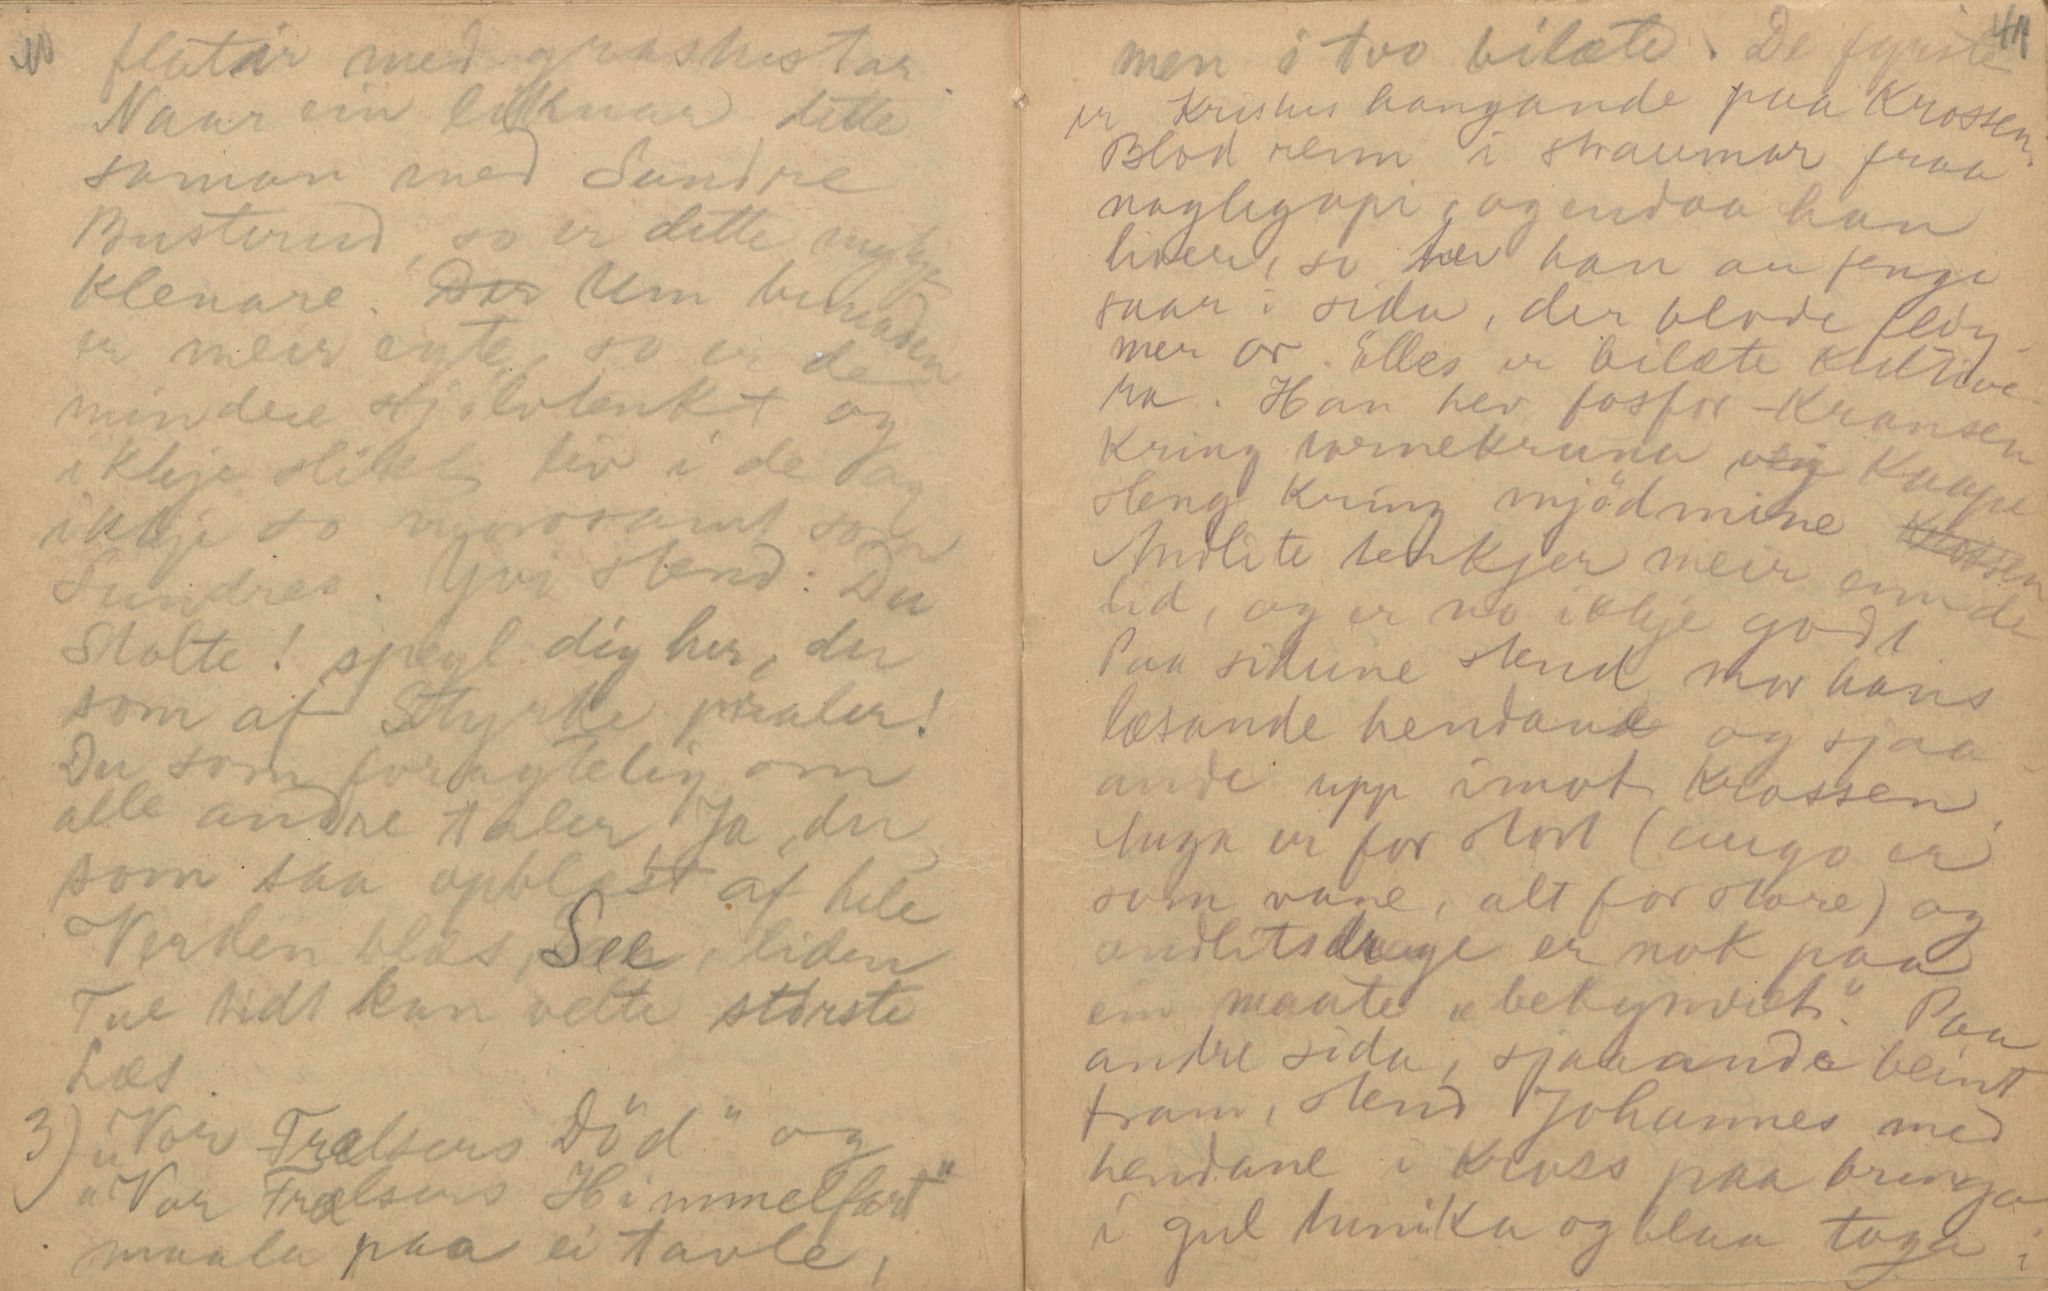 flatar med grashestar.
Naar ein liknar dette
saman med Sundre
Busterud, so er dette mykje
klenare. Der Um bunaden
er meir egte, so er de
mindre sjölvtenkt og
ikkje slikt liv i de og
ikkje so morosamt som
Sundres. Yvi stend: Du
Stolte! spegl dig her, du
som af Styrke praler!
Du som foragtelig om
alle andre taler, Ja, du
som saa opblæst af hele
Verden blæs, See, liden
Tue tidt kan velte störste
Læs.
3) "Vor Frælsers Död" og
"Vor Frælsers Himmelfart"
maala paa ei tavle,
men i two bilæte. De fyrste
er Kristus hangande paa Krossen.
Blod renn i straumar fraa
naglegapi, og endaa han
liver, so hev han au fenge
saar i sida, der blode flöy-
mer or. Elles er bilæte
ra. Han hev fosfor-Kransen
Kring tornekruna og Kaape
sleng Kring mjödmine Krossen
Andlite tenkjer meir enn de
lid, og er no ikkje godt
Paa sidune stend mor hans
læsande hendane og sjaa-
ande upp imot Krossen.
Auga er for stort (augo er
som vane, alt for store) og
andlitsdrage er nok paa
ein maate "bekymret". Paa
andre sida, sjaaande beint
fram, stend Johannes med
hendane i Kross paa bringa
i gul tunika og blaa toga i